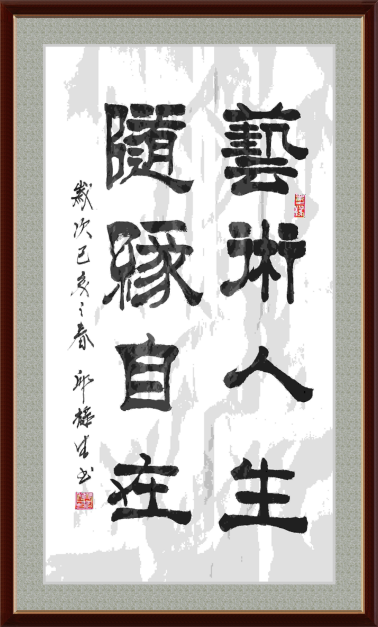 藝術人生
隨緣自在
歲次己亥之春 邱 生书